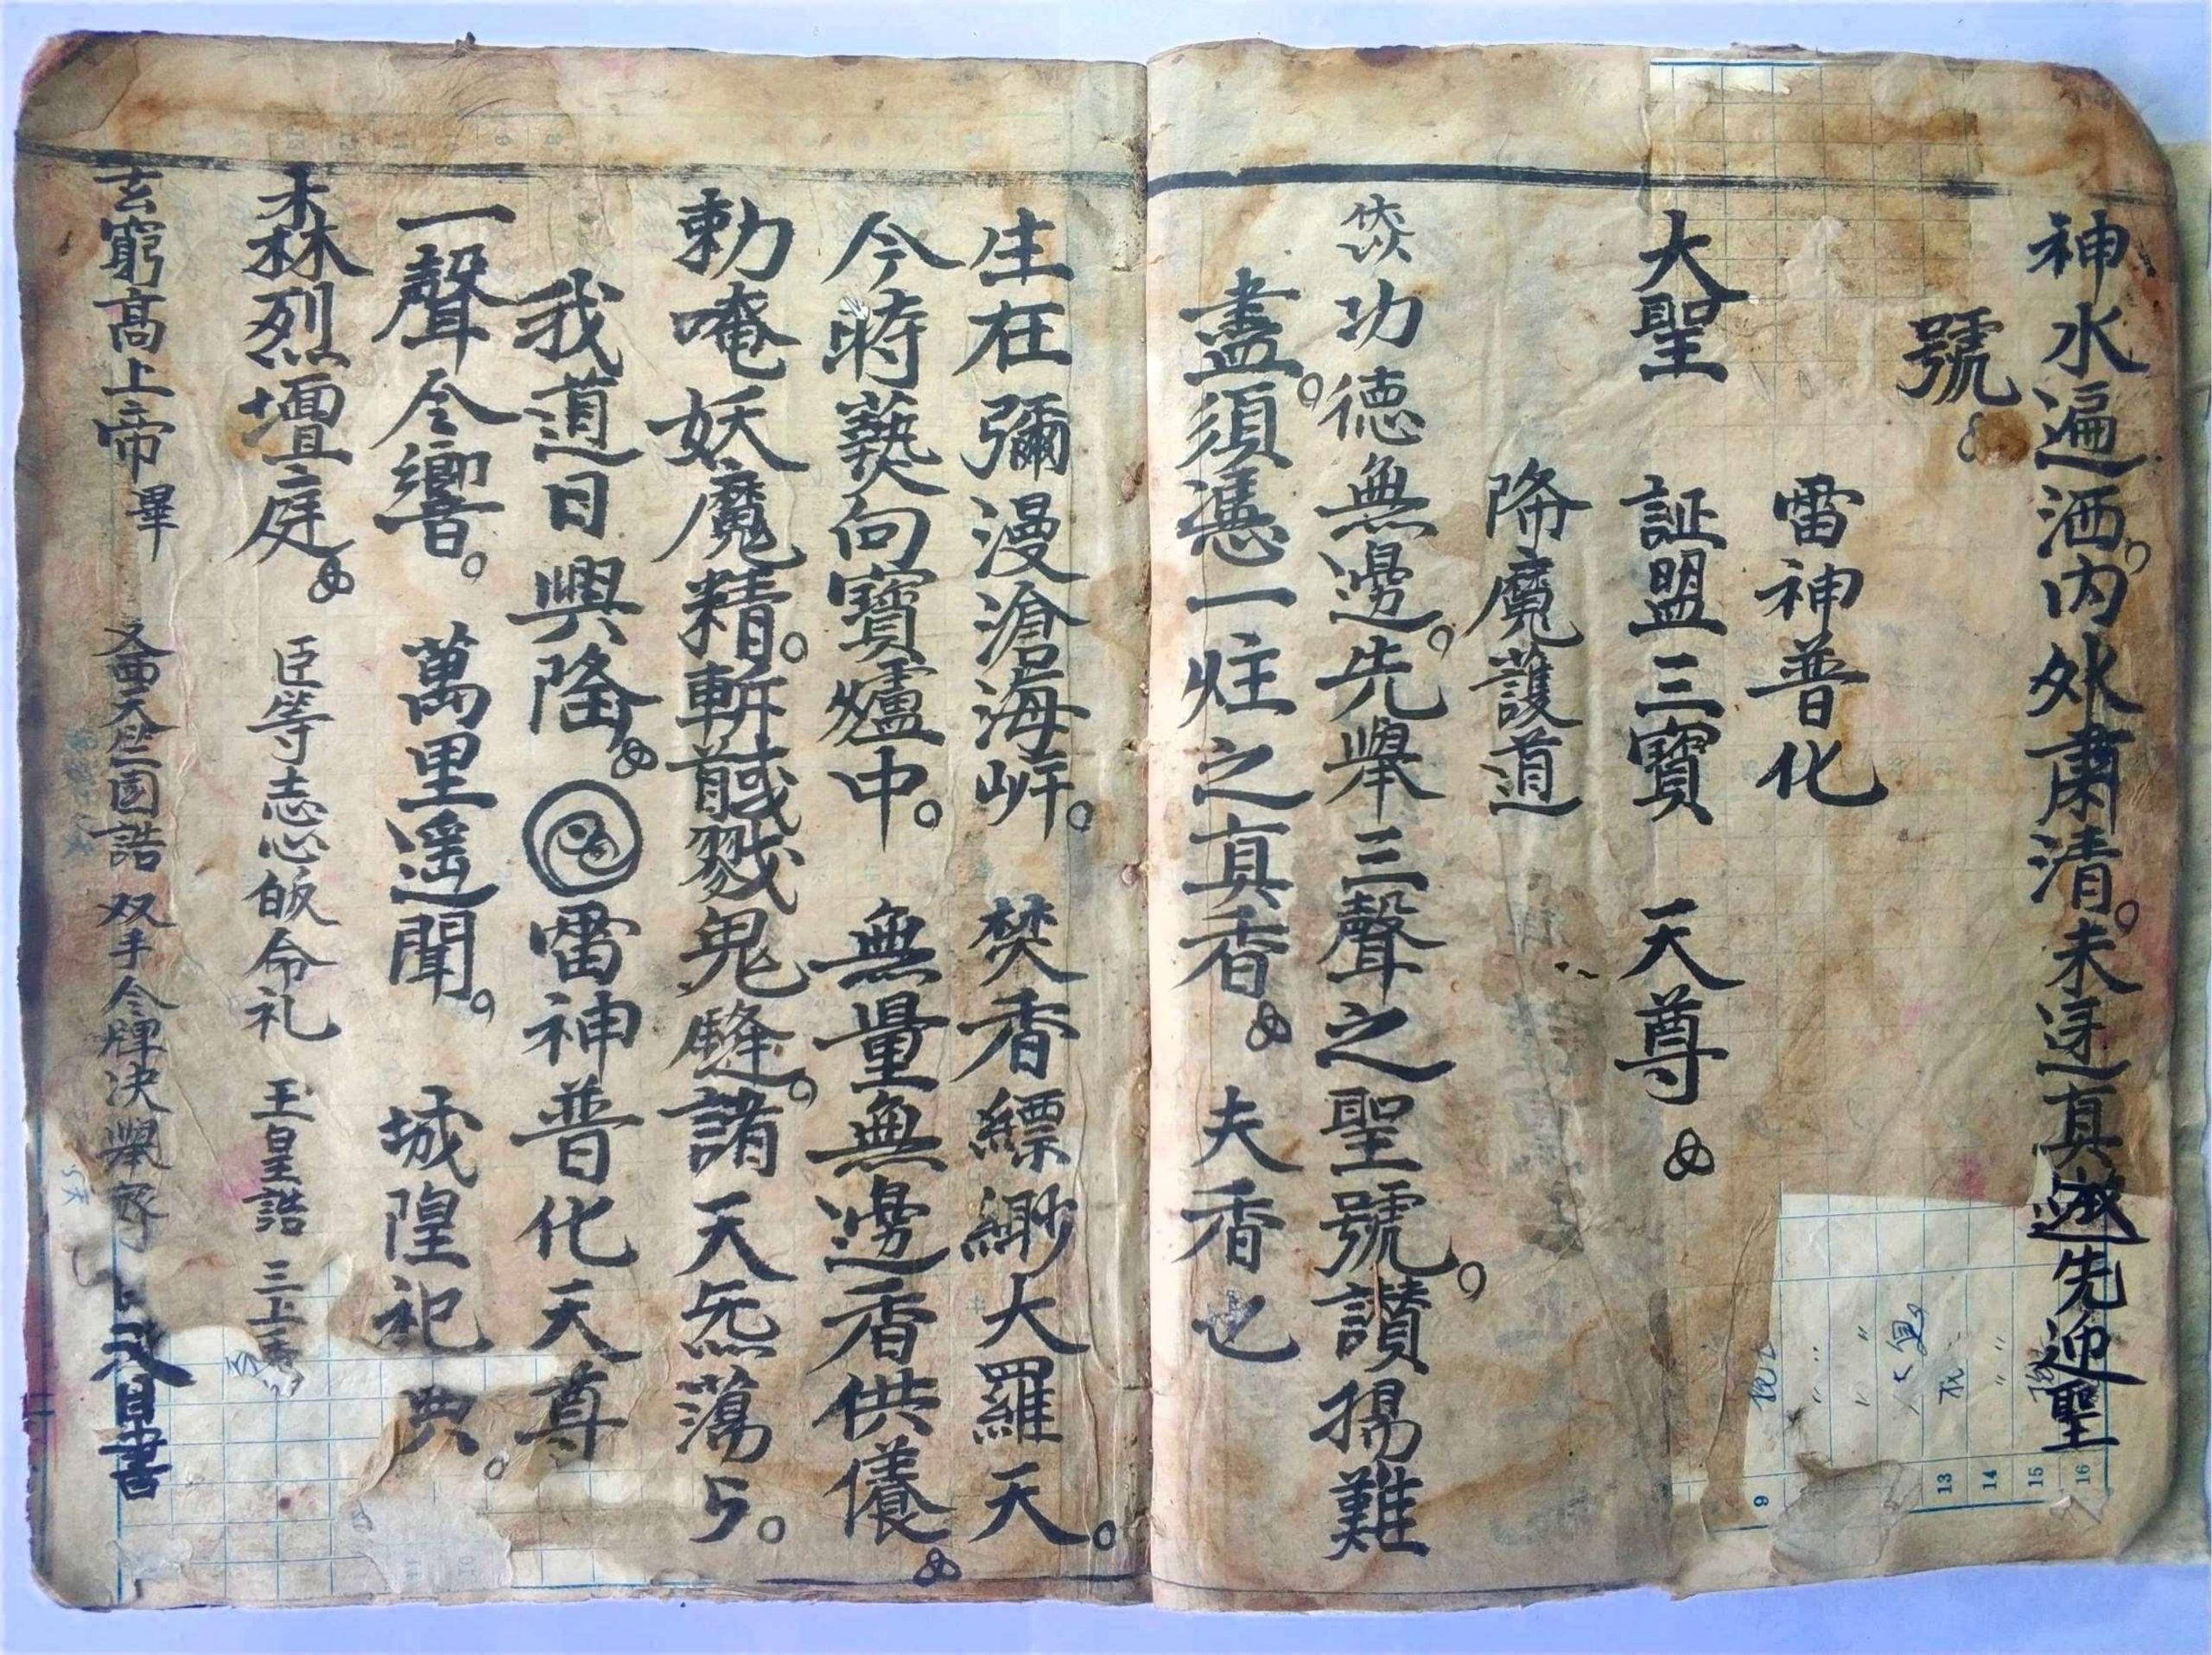 神水遍洒。内外肅清。未迓真遊先迎聖
號。
雷神普化
大聖 証盟三寶 天尊
降魔護道
功德無邊。先舉三聲之聖號。讚揚難
盡。須憑一炷之真香。夫香也
生在彌漫滄海岍。焚香縹緲大羅天。
今時爇向寶爐中。無量無邊香供養
勅唵妖魔精。斬馘戮鬼隆。諸天炁蕩ㄣ。
我道日興隆。雷神普化天尊
一聲令響。萬里遥聞。城隍祀典。
森烈壇庭。臣等志心皈命礼 玉皇誥 三上香
玄窮高上帝 畢 又西天丘囯誥 双手令牌决舉 日書